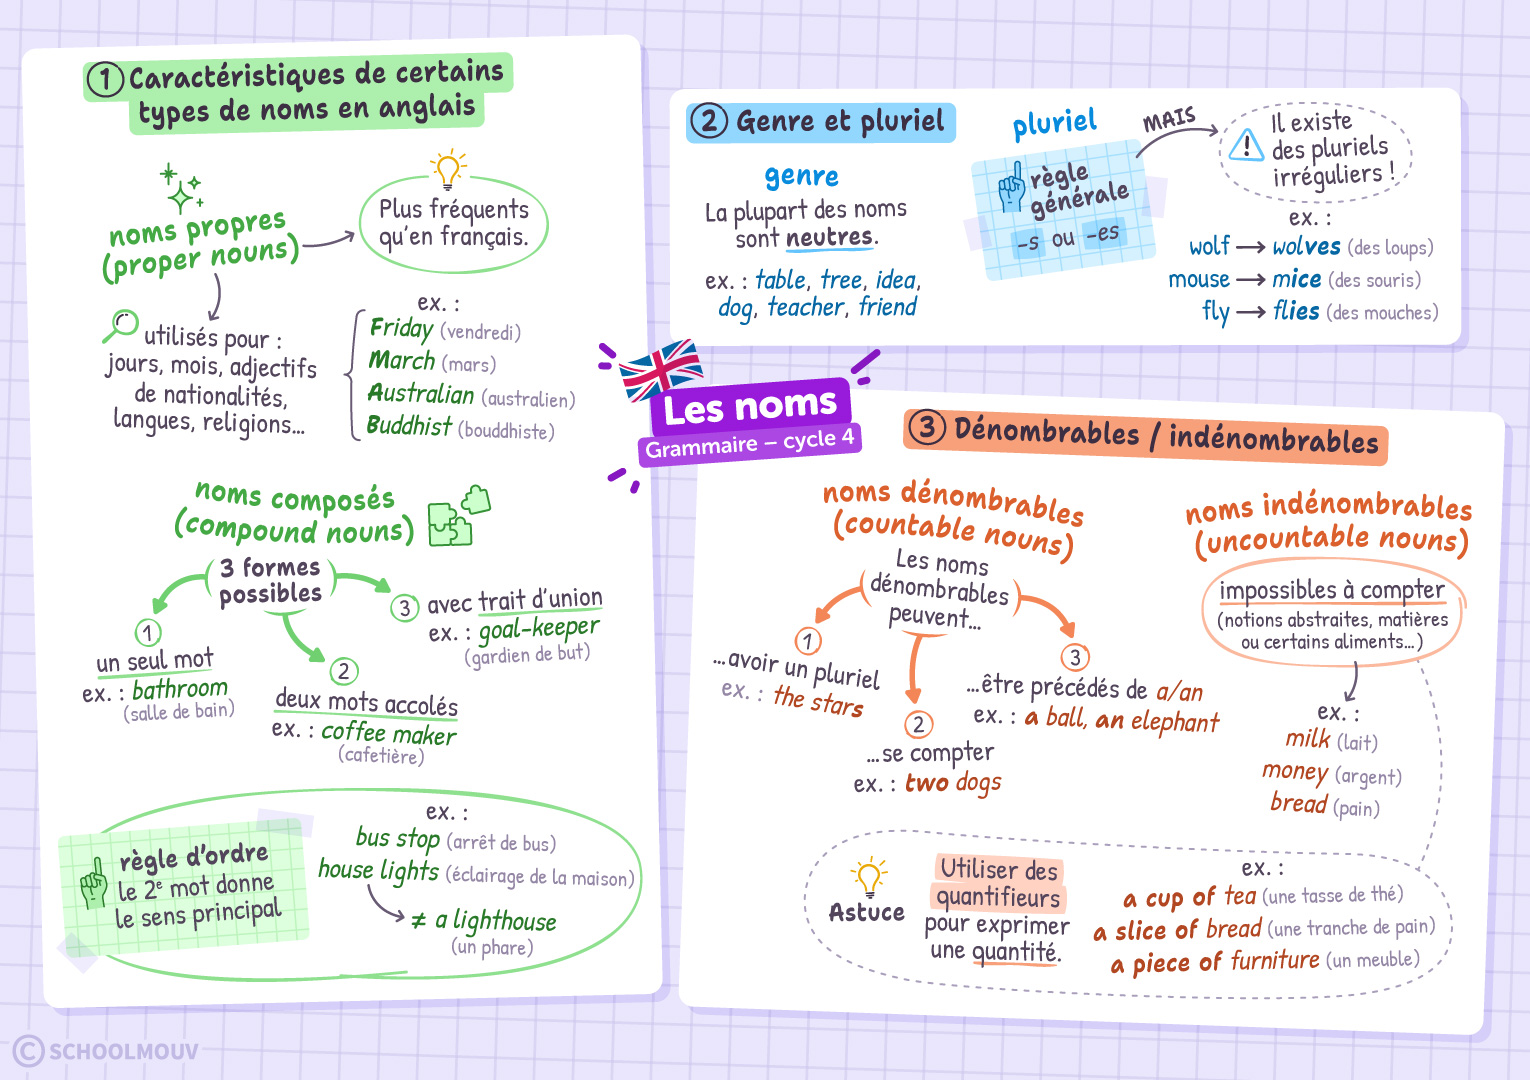 ① Caractéristiques de certains
types de noms en anglais
noms propres
(proper nouns)
Plus fréquents
qu'en français.
utilisés pour :
jours, mois, adjectifs
de nationalités,
langues, religions...
ex. :
Friday (vendredi)
March (mars)
Australian (australien)
Buddhist (bouddhiste)
noms composés
(compound nouns)
3 formes
possibles
1
un seul mot
ex. : bathroom
(salle de bain)
2
deux mots accolés
ex. : coffee maker
(cafetière)
3 avec trait d'union
ex. : goal-keeper
(gardien de but)
règle d'ordre
le 2e mot donne
le sens principal
ex. :
bus stop (arrêt de bus)
house lights (éclairage de la maison)
≠ a lighthouse
(un phare)
② Genre et pluriel
genre
La plupart des noms
sont neutres.
ex. : table, tree, idea,
dog, teacher, friend
pluriel
règle
générale
-s ou -es
MAIS
! Il existe
des pluriels
irréguliers !
ex. :
wolf → wolves (des loups)
mouse → mice (des souris)
fly → flies (des mouches)
Les noms
Grammaire – cycle 4
③ Dénombrables / indénombrables
noms dénombrables
(countable nouns)
Les noms
dénombrables
peuvent...
1
...avoir un pluriel
ex. : the stars
2
...se compter
ex. : two dogs
3
...être précédés de a/an
ex. : a ball, an elephant
noms indénombrables
(uncountable nouns)
impossibles à compter
(notions abstraites, matières
ou certains aliments...)
ex. :
milk (lait)
money (argent)
bread (pain)
Astuce
Utiliser des
quantifieurs
pour exprimer
une quantité.
ex. :
a cup of tea (une tasse de thé)
a slice of bread (une tranche de pain)
a piece of furniture (un meuble)
© SCHOOLMOUV